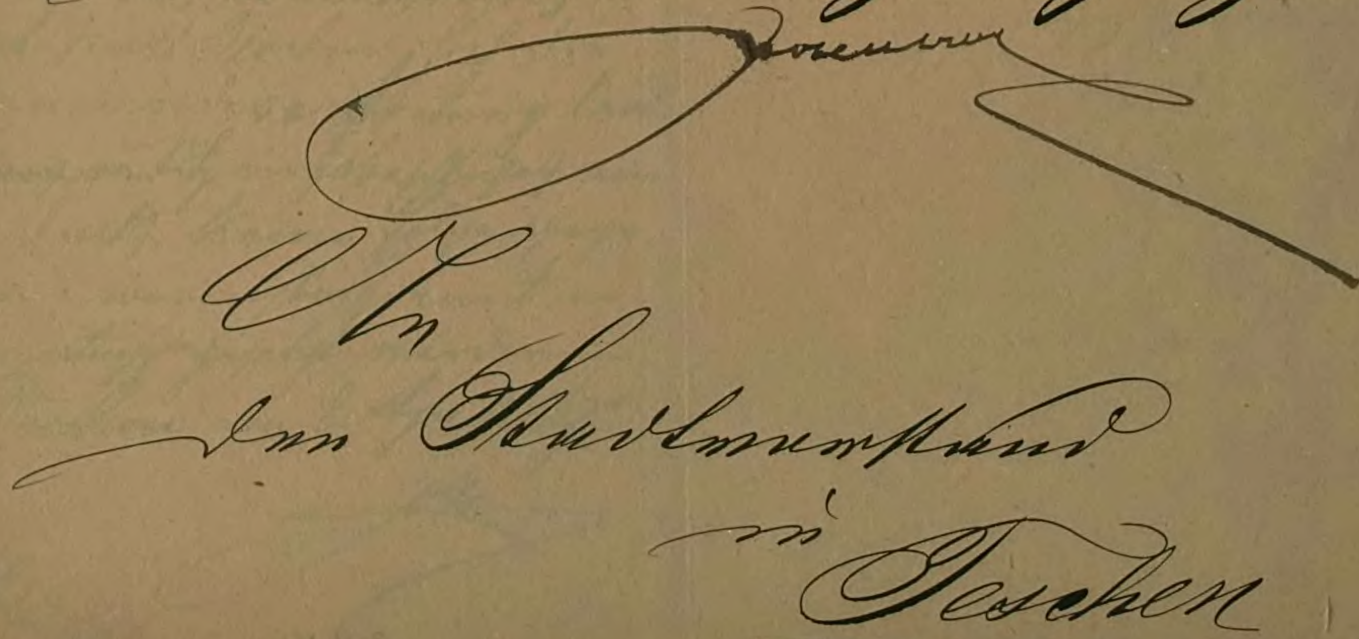 An
den Stadtvorstand
in
Teschen